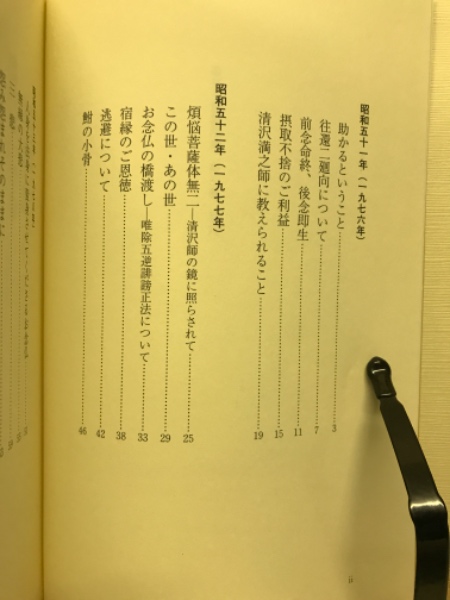 昭和五十一年(一九七六年)
助かるということ 3
往還二廻向について 7
前念命終、後念即生 11
摂取不捨のご利益 15
清沢満之師に教えられること 19
昭和五十二年(一九七七年)
煩悩菩薩体無二—清沢師の鏡に照らされて 25
この世・あの世 29
お念仏の橋渡し—唯除五逆誹謗正法について 33
宿縁のご恩徳 38
逃避について 42
鮒の小骨 46
ii